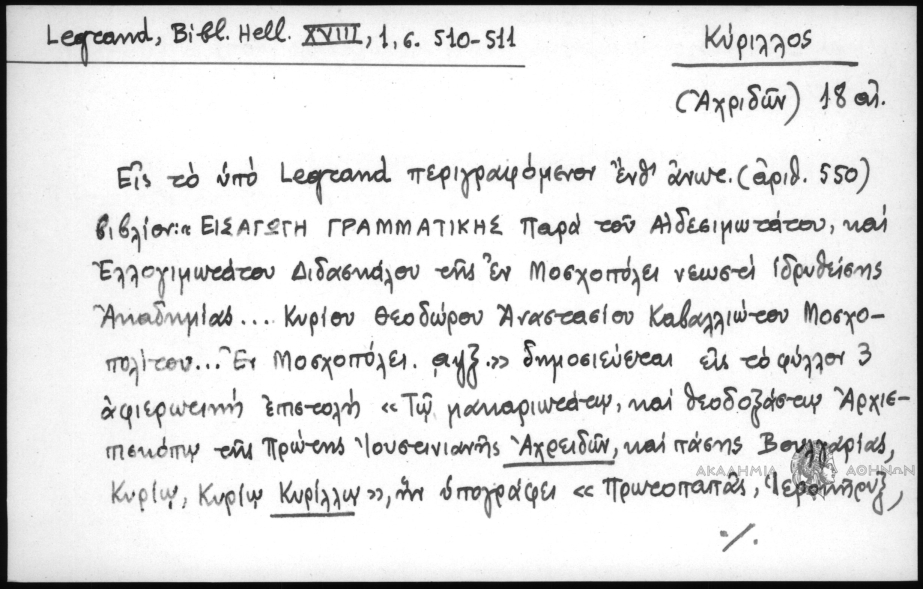 Legrand, Bibl. Hell. XVIII, 1, σ. 510-511
Κύριλλος
(Ἀχριδῶν) 18 αἰ.
Εἰς τὸ ὑπὸ Legrand περιγραφόμενον ἔνθ' ἄνωτ. (ἀριθ. 550)
βιβλίον: « ΕΙΣΑΓΩΓΗ ΓΡΑΜΜΑΤΙΚΗΣ Παρὰ τοῦ Αἰδεσιμωτάτου, καὶ
Ἐλλογιμωτάτου Διδασκάλου τῆς ἐν Μοσχοπόλει νεωστὶ ἱδρυθείσης
Ἀκαδημίας ... Κυρίου Θεοδώρου Ἀναστασίου Καβαλλιώτου Μοσχο-
πολίτου... Ἐν Μοσχοπόλει. αψξ.» δημοσιεύεται εἰς τὸ φύλλον 3
ἀφιερωτικὴ ἐπιστολὴ « Τῷ μακαριωτάτῳ, καὶ θεοδοξάστῳ Ἀρχιε-
πισκόπῳ τῆς Πρώτης Ἰουστινιανῆς Ἀχρειδῶν, καὶ πάσης Βουλγαρίας,
Κυρίῳ, Κυρίῳ Κυρίλλῳ », ἣν ὑπογράφει « Πρωτοπαπᾶς, Ἱεροκῆρυξ,
ΑΚΑΔΗΜΙΑ ΑΘΗΝΩΝ
·/.